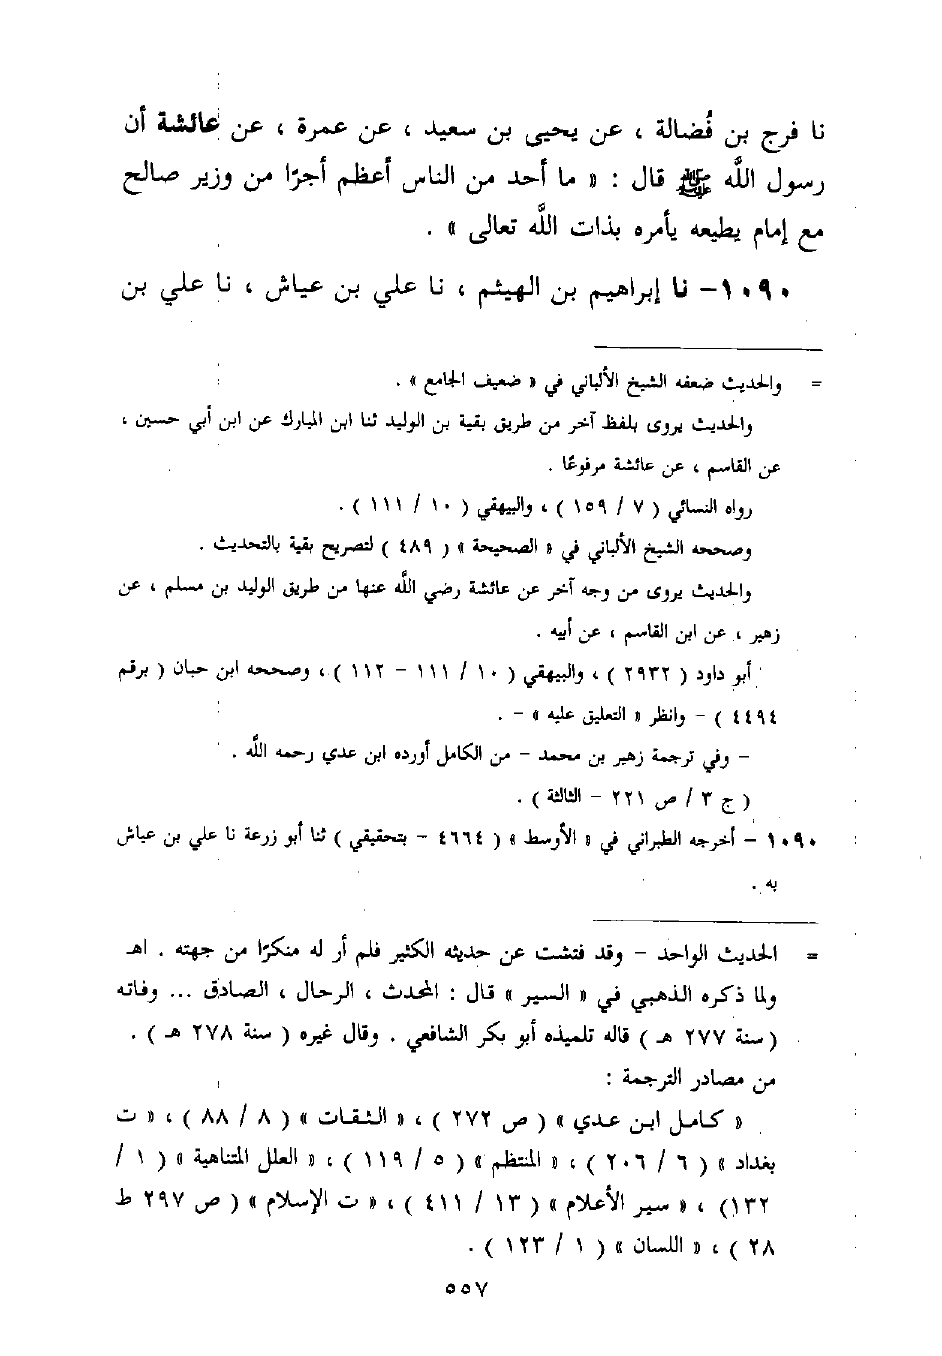 نا فرج بن فُضالة ، عن يحيى بن سعيد ، عن عمرة ، عن عائشة أن
رسول اللَّه ﷺ قال : « ما أحد من الناس أعظم أجرًا من وزير صالح
مع إمام يطيعه يأمره بذات اللَّه تعالى » .
١٠٩٠- نا إبراهيم بن الهيثم ، نا علي بن عياش ، نا علي بن
= والحديث ضعفه الشيخ الألباني في « ضعيف الجامع » .
والحديث يروى بلفظ آخر من طريق بقية بن الوليد ثنا ابن المبارك عن ابن أبي حسين ،
عن القاسم ، عن عائشة مرفوعًا .
رواه النسائي ( ٧ / ١٥٩ ) ، والبيهقي ( ١٠ / ١١١ ) .
وصححه الشيخ الألباني في « الصحيحة » ( ٤٨٩ ) لتصريح بقية بالتحديث .
والحديث يروى من وجه آخر عن عائشة رضي اللَّه عنها من طريق الوليد بن مسلم ، عن
زهير ، عن ابن القاسم ، عن أبيه .
أبو داود ( ٢٩٣٢ ) ، والبيهقي ( ١٠ / ١١١ - ١١٢ ) ، وصححه ابن حبان ( برقم
٤٤٩٤ ) - وانظر « التعليق عليه » - .
- وفي ترجمة زهير بن محمد - من الكامل أورده ابن عدي رحمه اللَّه .
( ج ٣ / ص ٢٢١ - الثالثة ) .
١٠٩٠ - أخرجه الطبراني في « الأوسط » ( ٤٦٦٤ - بتحقيقي ) ثنا أبو زرعة نا علي بن عياش
به .
= الحديث الواحد - وقد فتشت عن حديثه الكثير فلم أر له منكرًا من جهته . اهـ
ولما ذكره الذهبي في « السير » قال : المحدث ، الرحال ، الصادق ... وفاته
( سنة ٢٧٧ هـ ) قاله تلميذه أبو بكر الشافعي . وقال غيره ( سنة ٢٧٨ هـ ) .
من مصادر الترجمة :
« كامل ابن عدي » ( ص ٢٧٢ ) ، « الثقات » ( ٨ / ٨٨ ) ، « ت
بغداد » ( ٦ / ٢٠٦ ) ، « المنتظم » ( ٥ / ١١٩ ) ، « العلل المتناهية » ( ١ /
١٣٢) ، « سير الأعلام » ( ١٣ / ٤١١ ) ، « ت الإسلام » ( ص ٢٩٧ ط
٢٨ ) ، « اللسان » ( ١ / ١٢٣ ) .
٥٥٧